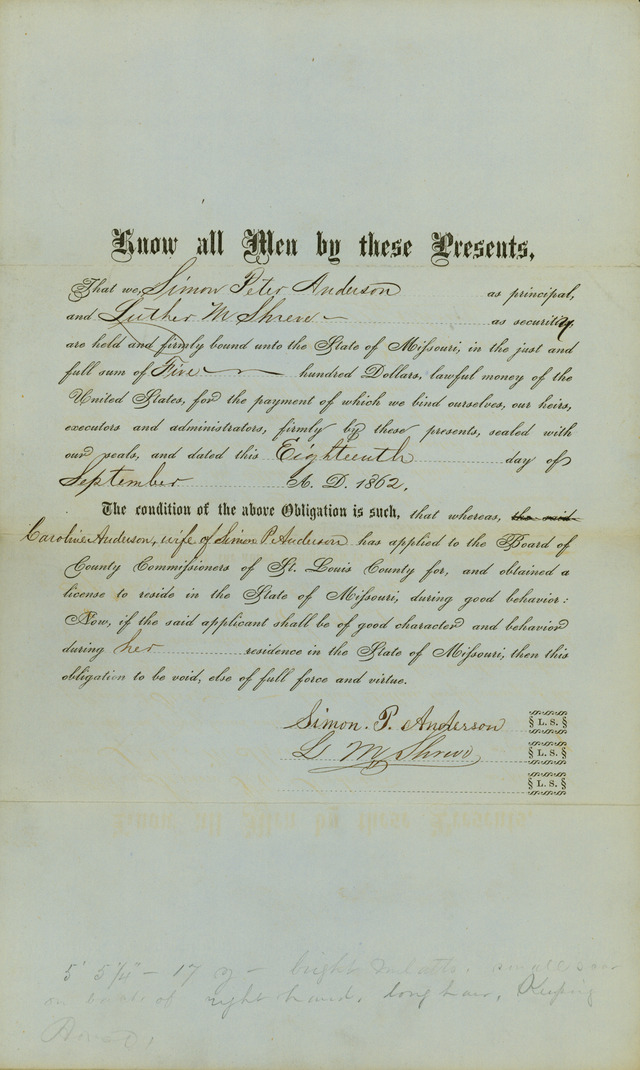 Know all Men by these Presents,
That we, Simon Peter Anderson as principal,
and Luther M Shreve as security
are held and firmly bound unto the State of Missouri, in the just and
full sum of Five hundred Dollars, lawful money of the
United States, for the payment of which we bind ourselves, our heirs,
executors and administrators, firmly by these presents, sealed with
our seals, and dated this Eighteenth day of
September A. D. 1862.
The condition of the above Obligation is such, that whereas, the said
Caroline Anderson, wife of Simon P. Anderson has applied to the Board of
County Commissioners of St. Louis County for, and obtained a
license to reside in the State of Missouri, during good behavior:
Now, if the said applicant shall be of good character and behavior
during her residence in the State of Missouri; then this
obligation to be void, else of full force and virtue.
Simon. P. Anderson L. S.
L M Shreve L. S.
L. S.
5' 5¼" - 17 y - bright Mulatto. small scar
on back of right hand. long hair, Keeping